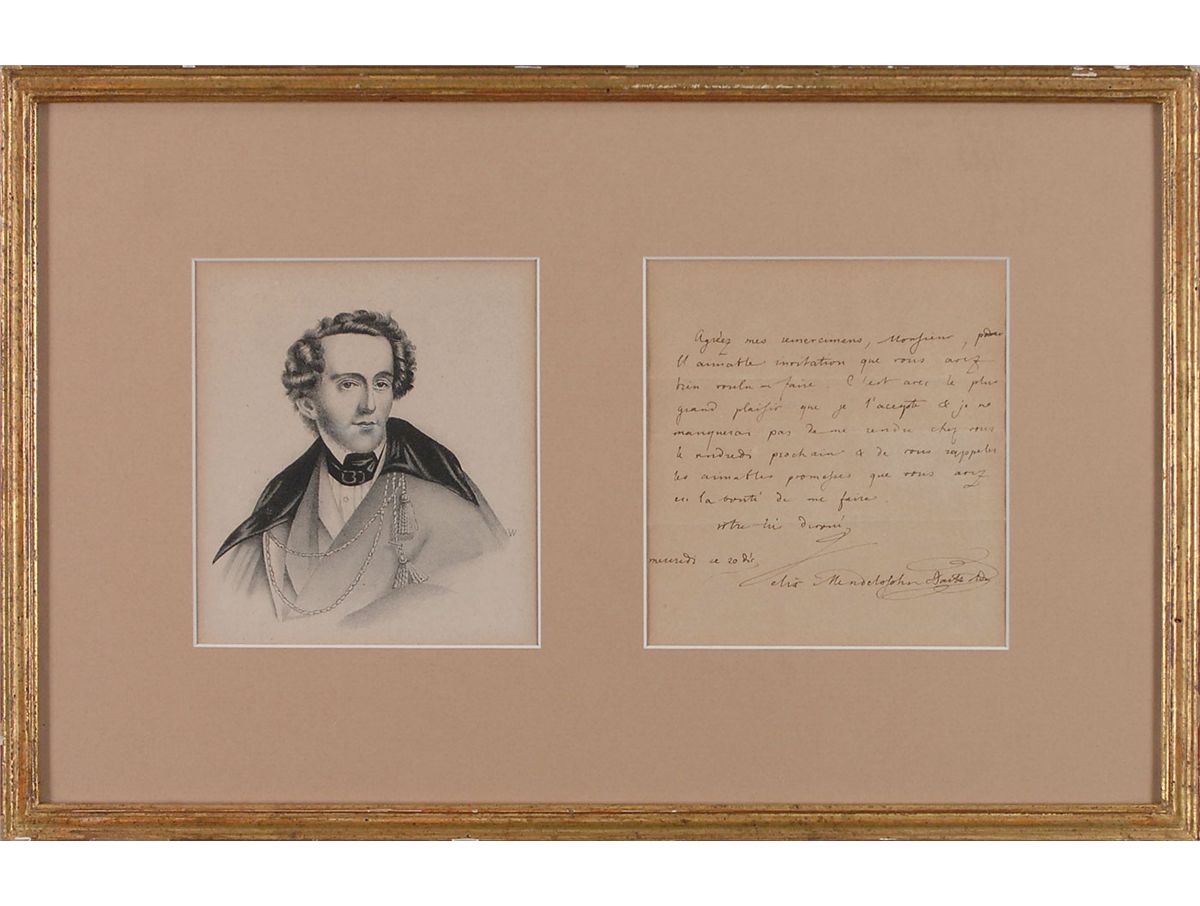 W
Agréez mes remercimens, Monsieur, pour
l'aimable invitation que vous avez
bien voulu me faire. C'est avec le plus
grand plaisir que je l'accepte & je ne
manquerai pas de me rendre chez vous
le vendredi prochain & de vous rappeler
les aimables promesses que vous avez
eu la bonté de me faire.
votre dévoué
mercredi ce 20 Déc
Felix Mendelssohn Bartholdy